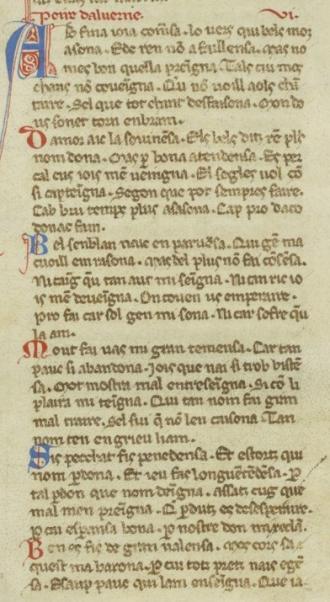 Peire daluernie. .vi.
Ab fina ioia comēsa. lo uers qui bels moz
asona. Ede ren nō a faillensa. Mas no
mes bon quella prēigna. Tals cui mos
chans nō coueigna. Qui nō uoill aols chā
taire. Sel que tot chant desfaisona. Mon do
us sonet torn enbram.
Damor aic la souinēsa. Els bels ditz rē pl9
nom dona. Mas p bona atendensa. Es per
cal cus iois mē ueingna. El segles uol cō
si capteigna. Segon que pot sempres faire.
Cab breu temps plus asasona. Cap pro daco
donac fam.
Bel semblan naue en paruēsa. Qui gē ma
cuoill em rasona. mas del plus nō fai cōsēsa.
Ni taig q̄u tan aut mi seigna. Ni tan ric io
is mē deueigna. On couen us emperaire.
pro fai car sol gen mi sona. Ni car sofre qu
la am.
Mout fai uas mi gran temensa. Car tan
pauc si abandona. Iois que nai si trob bistē
sa. Mot mostra mal entreseigna. Si cō li
plaira mi teigna. Qui tan nom fai gram
mal traire. Sel fui q̄ nō leu cuisona. Tan
nom ten en grieu liam.
Sis pecchat fis penedensa. Et estortz qui
nom pdona. Et ieu faz longuerēdēsa. P
tal pdon que nom dēigna. Assatz cug que
mal men preigna. Q pdutz es desesperaire.
P cui esperansa bona. P nostre don
Ben es fis de gran ualensa. Mos cors sa
quest ma barona. P cui totz pretz nais egē
sa. Esaup pauc qui lam enseigna. Que ia